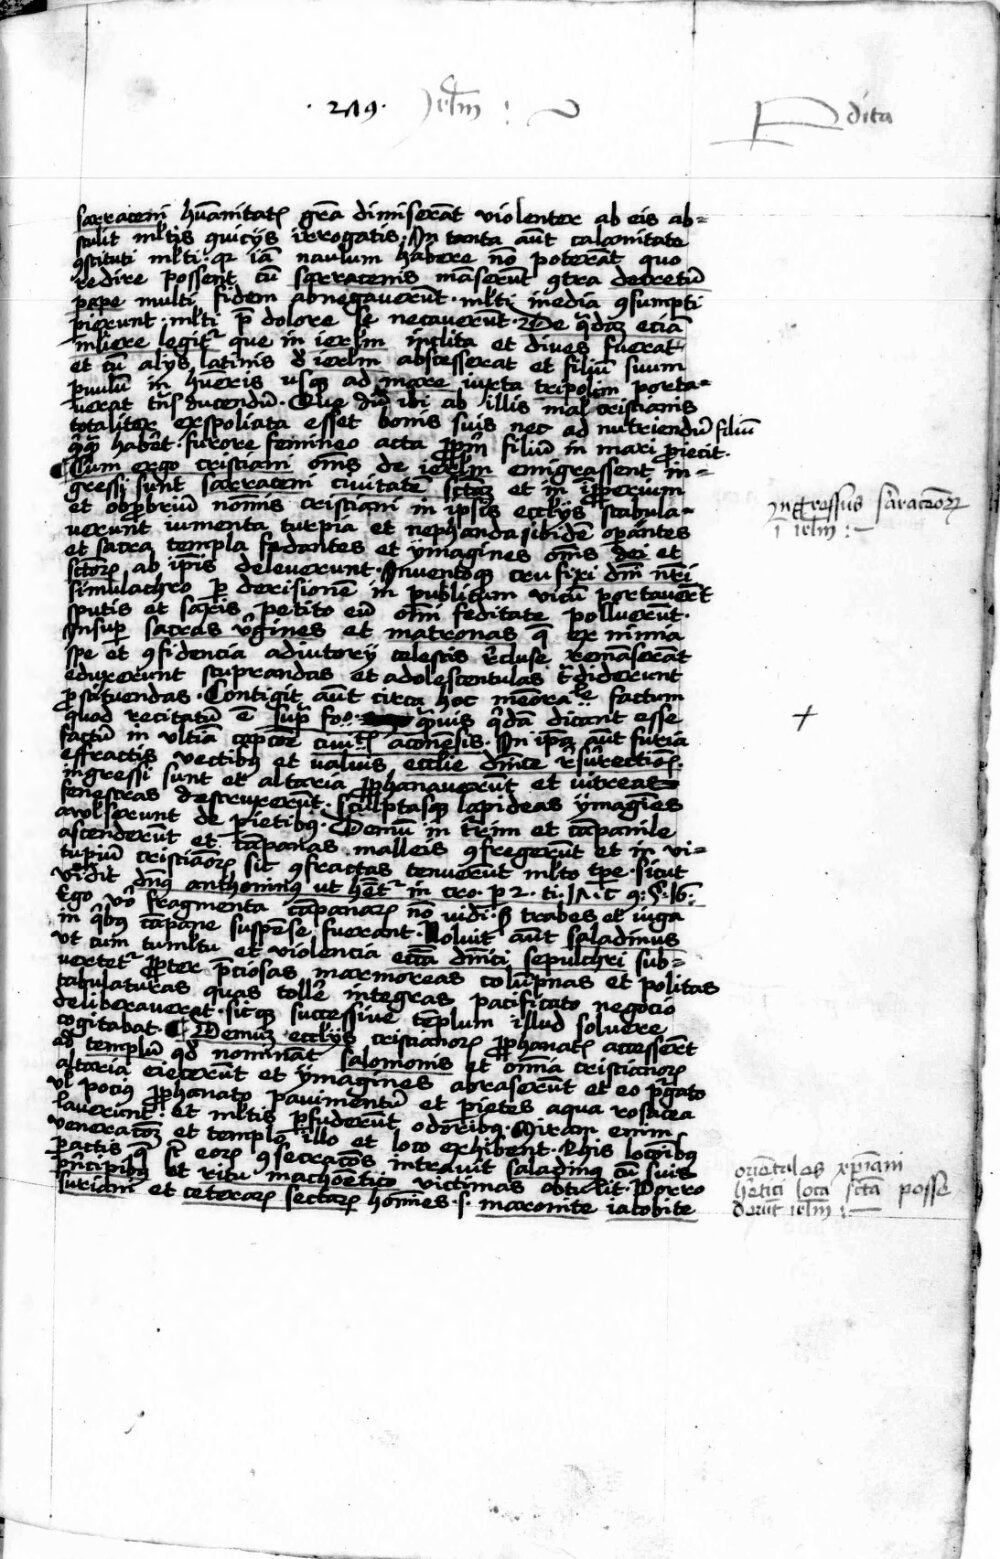 · 249 · Jerlm :
Perdita
sarraceni hūanitatꝭ grā dimiserāt violenter ab eis ab=
stulit ml̄tis quicijs irrogatis. In tanta aūt calamitate
ꝯstituti ml̄ti. qr iā naulum habere nō poterāt quo
redire possent cū sarracenis māserūt ꝯtra decretū
pape multi fidem abnegaverūt. ml̄ti inedia ꝯsumpti
pierunt. ml̄ti p̄ dolore se necaverūt. De q̄daꝫ eciā
mliere legitᷣ que in ierlm inclita et dives fuerat
et cū alijs latinis ď ierlm abscesserat et filiū suum
ꝑvulū in hūeris usqꝫ ad mare iuxta tripolim porta=
verat tn̄s ducendū. Que dū ibi ab illis mal' cristianis
totaliter exspoliata esset bonis suis nec ad nutriendū filiū
q̄q̄ꝫ habēt. furore femineo acta ꝓpⁱū filiū in mari ꝓiecit.
¶ Cum ergo cristiani oms de ierlm emigrassent in=
gressi sunt sarraceni civitatē sctāꝫ et in īproperium
et obprbriū nomīs cristiani in ipsis eccl'ijs stabula=
verunt iumenta turpia et nephanda ibidē oꝑantes
et sacra templa fedantes et ymagines oms dei et
sctorꝝ ab ipis deleverunt. Inventoqꝫ crucifixi dm̄i nr̄i
simulachro ꝑ derisionē in publicum vicū portaverūt
sputis et saxis petito eū om̄i feditate polluerūt.
Insuꝑ sacras v̄gines et matronas q̄ ex nimia
spe et ꝯfidencia adiutorij celestis rēcluse remāserāt
eduxerunt stuprandas et adolescentulas trādiderunt
ꝓstituendas. Contigit aūt circa hoc mēorabile factum
quod recitatū ē suꝑ fo. q̄vis q̄dā dicant esse
factū in ultīa capcōe civitꝭ aconēsis. In ipa aūt furia
effractis vectibꝫ et valvis ecclie dn̄ice rᵉsurectionꝭ
ingressi sunt et altaria ꝓphanaverūt et vitreas
fenestras destruxerūt. sculptasqꝫ lapideas ymagīes
avulserunt de pietibꝫ. Demū in turim et cāpanile
ascenderūt et cāpanas malleis ꝯfregerūt et in vi=
tupiū cristianorꝝ sic ꝯfractas tenuerūt ml̄to tꝑe. sicut
vidit dn̄s anthoninꝰ ut hētᷣ in cro. p 2. ti.
Ego vᵒ fragmenta cāpanarꝝ nō vidi. sꝫ trabes et iuga
in qⁱbꝫ cāpane suspēse fuerant. Noluit aūt saladinus
ut cum tumltu et violencia ecciā dn̄ici sepulchri sub=
vertetᷣ ꝓpter p̄ciosas marmoreas colūpnas et politas
tabulaturas quas tollē integras pacificato negocio
deliberaverat. sicqꝫ successive tēplum illud solvere
cogitabat. ¶ Demū eccl'ijs cristianorꝝ ꝓphanatꝭ accesserūt
ad templū qd nominant salomonis et omīa cristianorꝝ
altaria eiecerūt et ymagines abraserūt et eo p̄gato
ul' pocius ꝓphanato pavimentū et pietes aqua rosacea
laverunt. et ml̄tis ꝑfuderūt odoribꝫ. Miram enim
veneracōeꝫ et templo illo et loco exhibent. Ahis locōibꝫ
ꝑactis q̄ st eorꝝ ꝯsecracōes intravit saladinꝰ cū suis
p̄ncipibꝫ et ritu machōetico victimas obtulit. Porro
suriani et ceterarꝝ sectarꝝ homīes. s. maronite iacobite
Ingressus saracēorꝝ
ī ierlm :
+
orientales xpiani
hētici loca sctā posse
derūt ierlm :